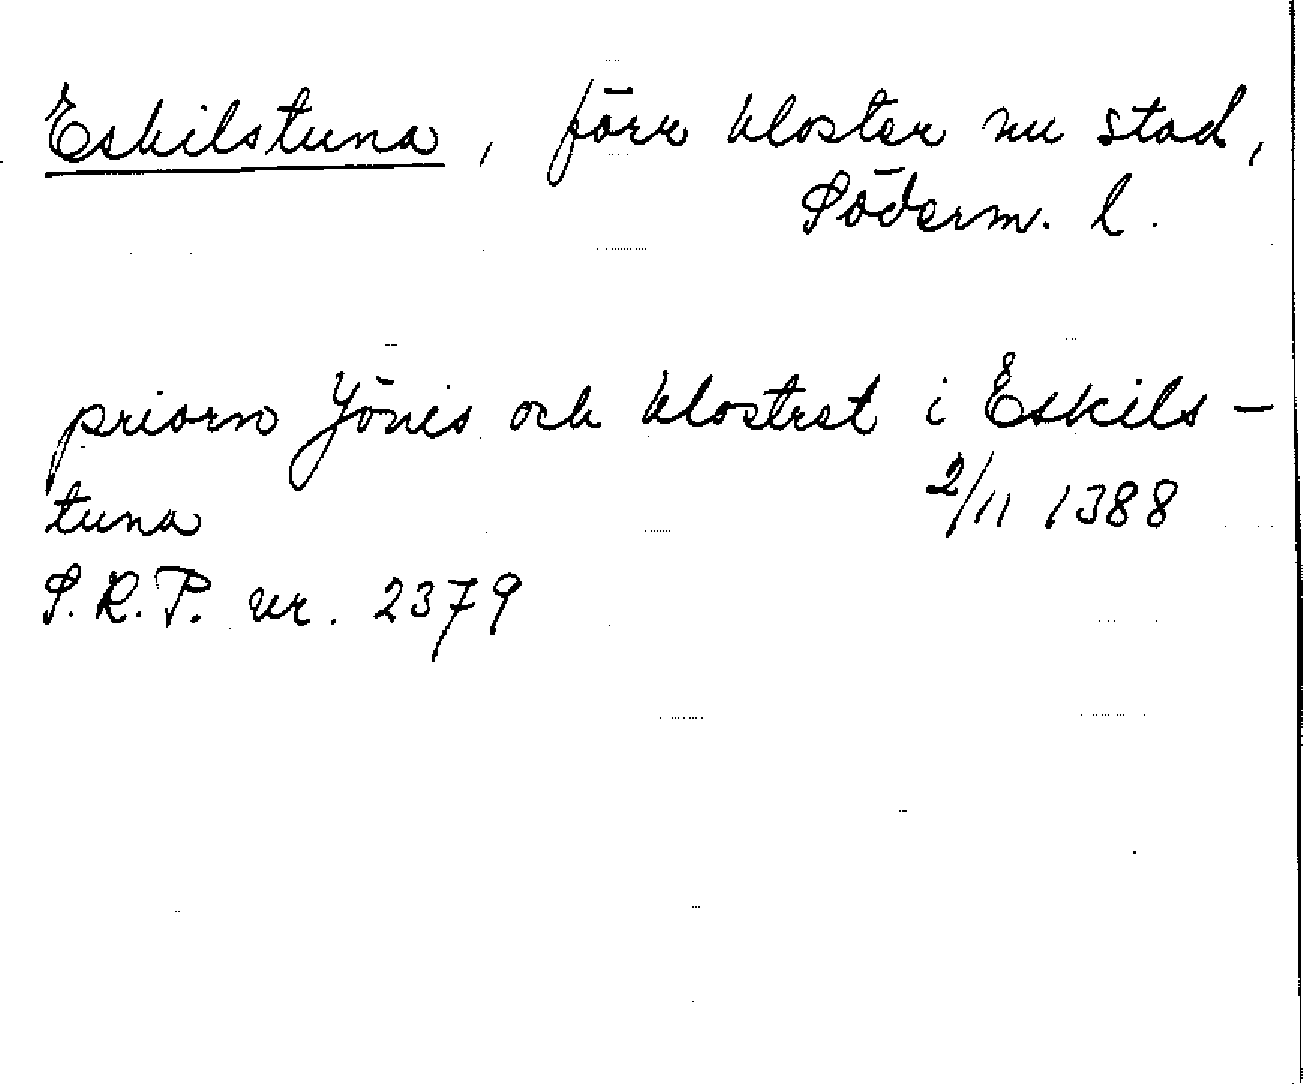 Eskilstuna, förr kloster nu stad,
Söderm. l.
priorn Jönis och klostret i Eskils-
tuna 2/11 1388
S.R.P. nr. 2379